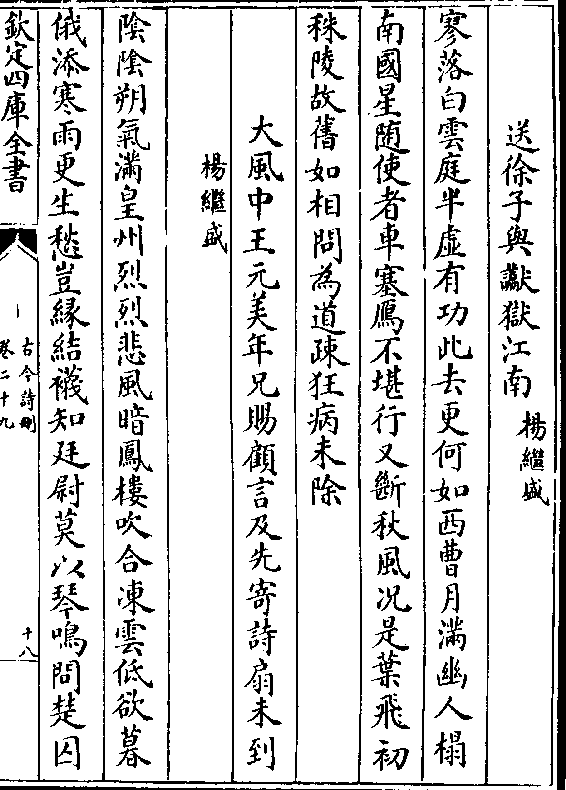 送徐子與讞獄江南
楊繼盛
寥落白雲庭半虛有功此去更何如西曹月滿幽人榻
南國星隨使者車塞鴈不堪行又斷秋風况是葉飛初
秣陵故舊如相問為道疎狂病未除
大風中王元美年兄賜顧言及先寄詩扇未到
楊繼盛
陰陰朔氣滿皇州烈烈悲風暗鳳樓吹合凍雲低欲暮
俄添寒雨更生愁豈緣結襪知廷尉莫以琴鳴問楚囚
欽定四庫全書
古今詩刪
卷二十九
十八